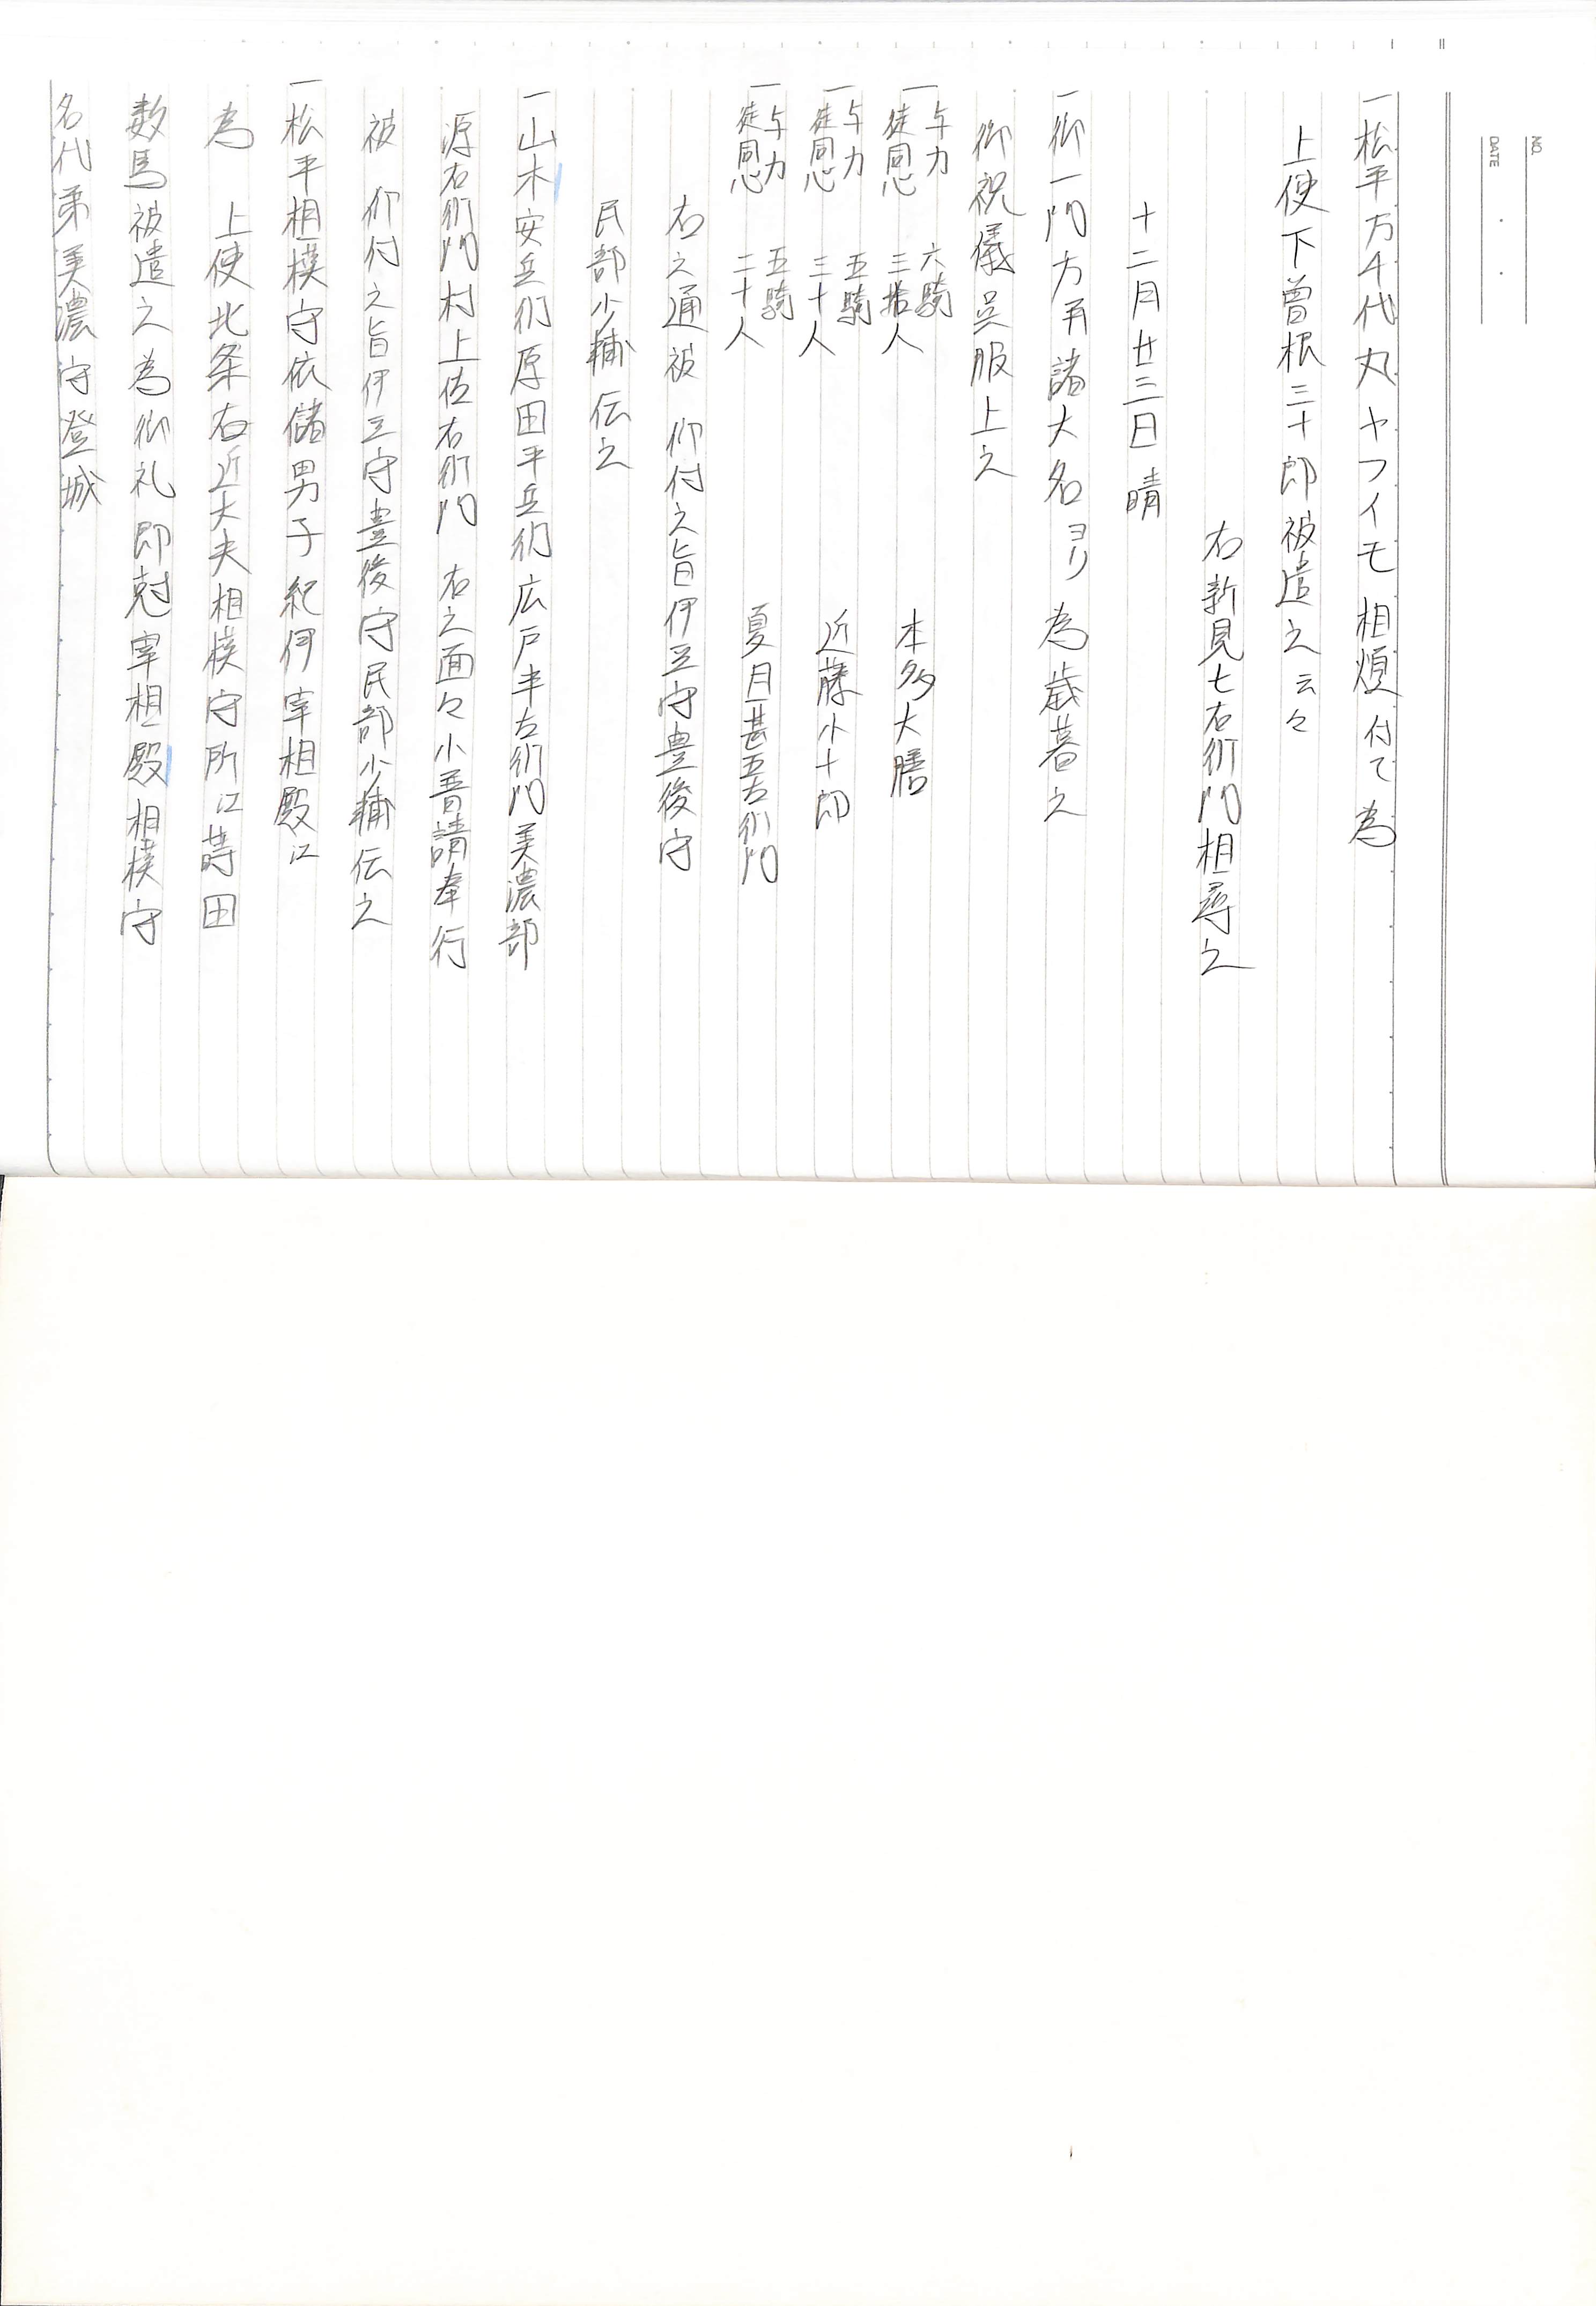 一松平万千代丸ヤフイモ相煩付て為
上使下曽根三十郎被遣之云々
右新見七右衛門相尋之
十二月廿三日晴
一御一門方并諸大名ヨリ為歳暮之
御祝儀呉服上之
一与力 六騎
徒同心 三拾人 本多大膳
一与力 五騎
徒同心 三十人 近藤小十郎
一与力 五騎
徒同心 二十人 夏目甚五左衛門
右之通被 仰付之旨伊豆守豊後守
民部少輔伝之
一山木安兵衛原田平兵衛広戸半左衛門美濃部
源右衛門村上佐右衛門 右之面々小普請奉行
被 仰付之旨伊豆守豊後守民部少輔伝之
一松平相模守依儲男子紀伊宰相殿江
為 上使北条右近大夫相模守所江蒔田
数馬被遣之為御礼即尅宰相殿相模守
名代弟美濃守登城
NO.
DATE